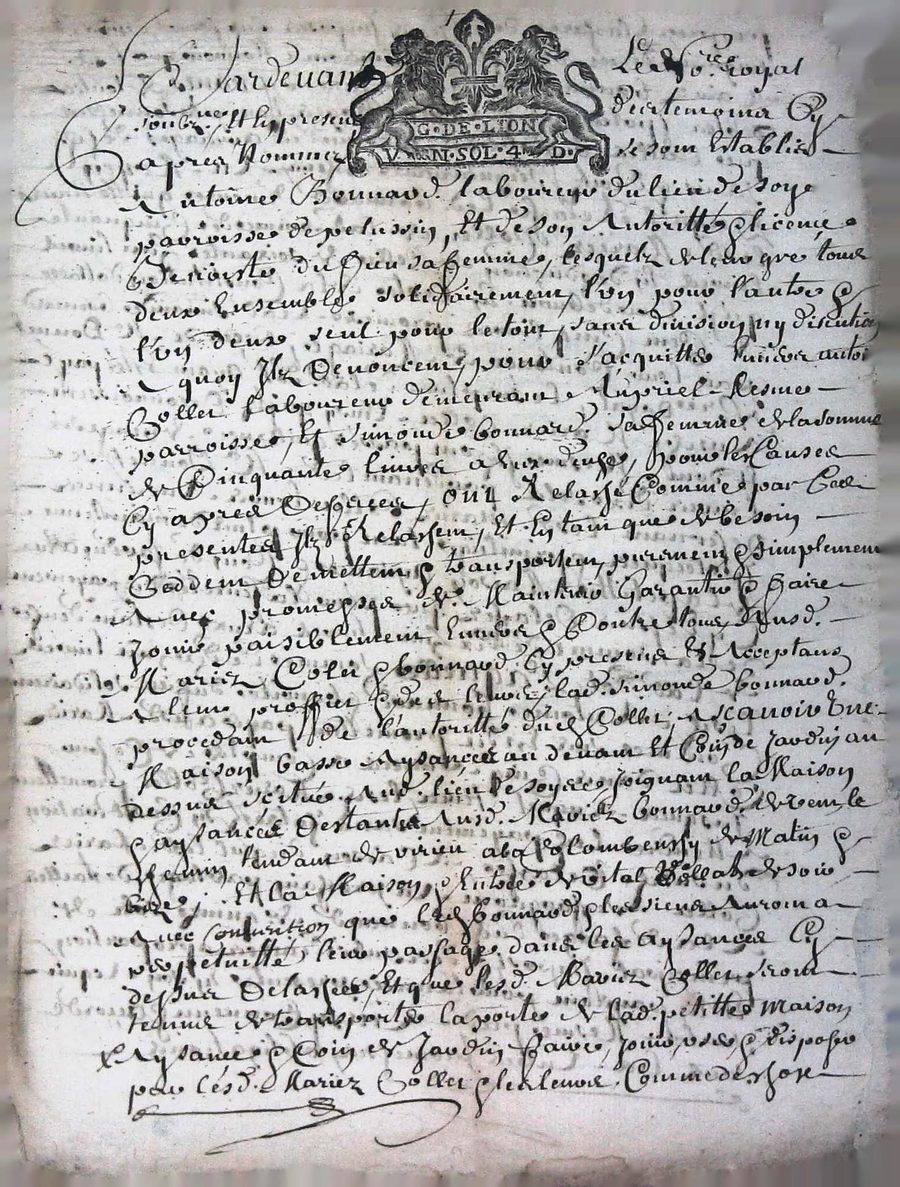 Pardevant Le No.re royal
soubz.ne, Et En presence des temoins Cy
G·DE·LION
apres Nommez se sont Establis
V N·SOL·4 D·
Antoine Bonnard laboureur du lieu de soye
parroisse de pelussin, Et de son Autoritté & licence
sa femme, lesquelz de leur gré tous
deux Ensemble solidairement, l'un pour l'autre &
l'un deux seul pour le tout, sans division ny discution
A quoy Ilz Renoncent, pour s'acquitter Envers antoi
Collet laboureur demeurant
parroisse, Et simonde bonnard sa femme de la somme
de Cinquante livres pour les Causes
Cy apres Ont Relassé Comme par Ces
presentes Ilz Relassent, Et En tant que de besoin
Ceddent Remettent & transportent purement & simplement
Avec promesses de Maintenir Garantir & Faire
Jouir paisiblement Envers & Contre tous Ausd.
Mariez Colet & bonnard Cy presens Et Acceptans
A leur proffict & des leurs, lad. simonde bonnard
procedant de l'autoritté dud. Collet, Ascavoir Une
Maison basse Aysances au devant Et Coin de Jardin au
dessus scitué Aud. lieu de soye Joignant la Maison
& aysances Restantes Ausd. Mariez bonnard de vent le
Chemin tendant de virieu de Matin &
bize, Et la Maison & de vital de soir
Avec que led. Bonnard & les siens Auront A
perpetuitté leur passage dans les aysances Cy
dessus Relassées, Et que lesd. Mariez Collet seront
tenus de transporter la porte de lad. petitte maison
Aysance & Coin de Jardin Faire, Jouir, user & disposer
par lesd. Mariez Collet & les leurs Comme de chose